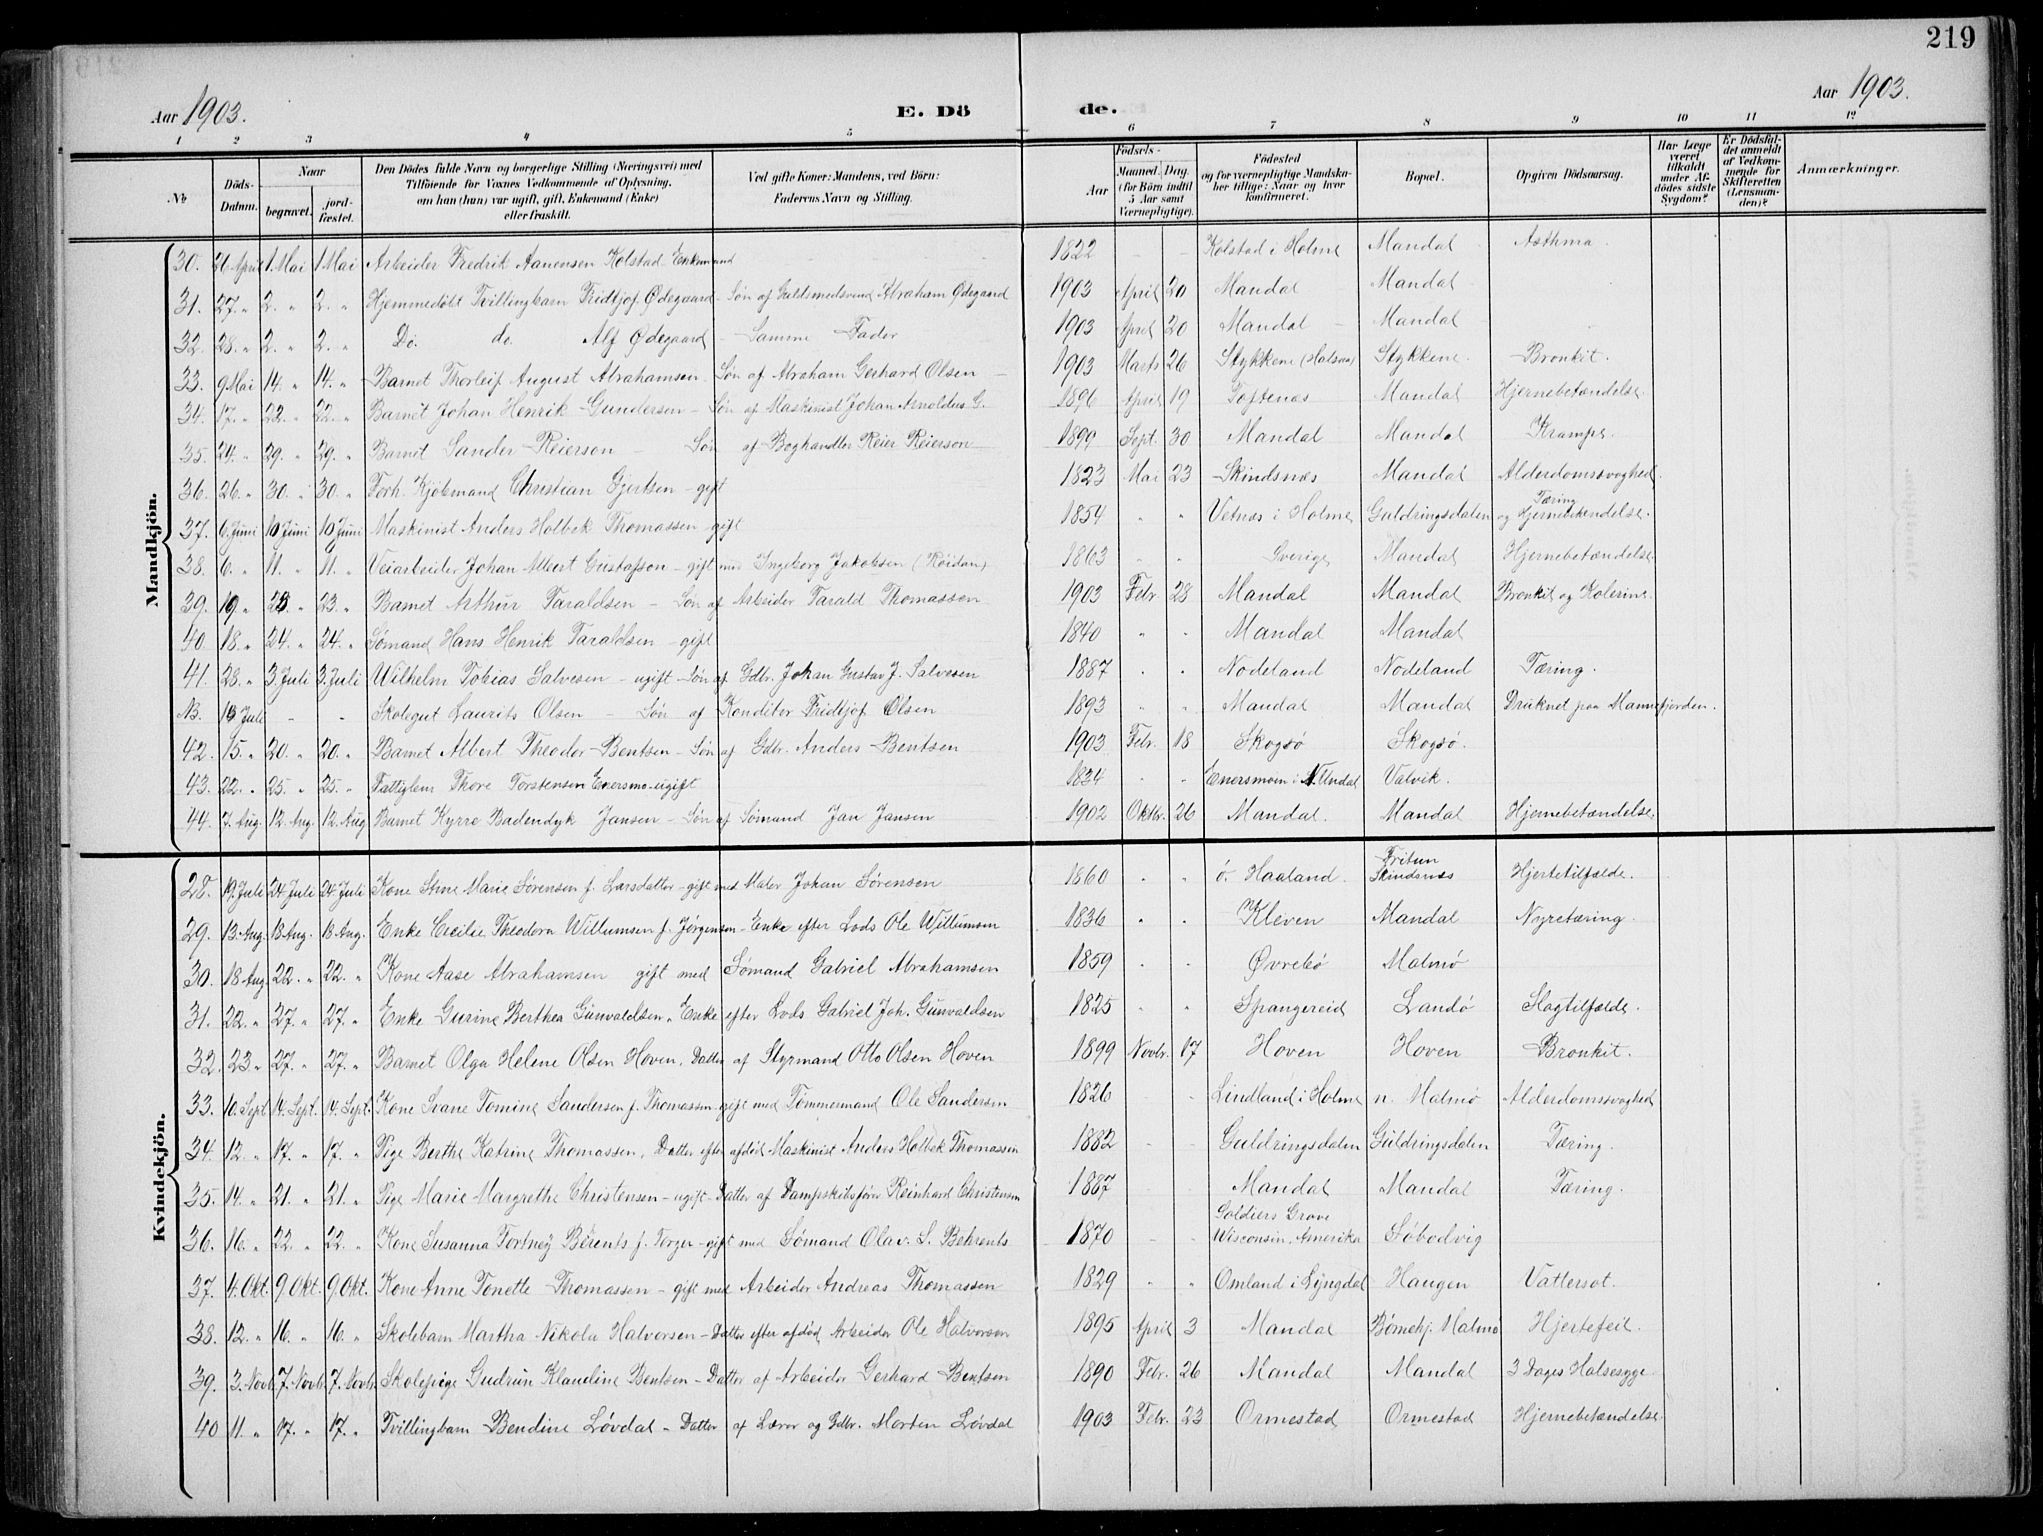 219
Aar 1903.
E. Dö de.
Aar 1903.
1 2 3 4 5 6 7 8 9 10 11 12
№
Döds-Datum.
Naar
begravet.
jord-fæstet.
Den Dödes fulde Navn og borgerlige Stilling (Næringsvei) med Tilföiende for Voxnes Vedkommende af Oplysning, om han (hun) var ugift, gift, Enkemand (Enke) eller fraskilt.
Ved gifte Koner: Mandens, ved Börn: Faderens Navn og Stilling.
Födsels-
Aar
Maaned. Dag.
(for Börn indtil 5 Aar samt Værnepligtige).
Födested og for værnepligtige Mandskaber tillige: Naar og hvor konfirmeret.
Bopæl.
Opgiven Dödsaarsag.
Har Læge været tilkaldt under Afdödes sidste Sygdom?
Er Dödsfaldet anmeldt af Vedkommende for Skifteretten (Lensmanden)?
Anmærkninger.
Mandkjön.
30. 26 April 1 Mai 1 Mai Arbeider Fredrik Aanensen Kolstad - Enkemand 1822 - - Kolstad i Holme Mandal Asthma
31. 27. " 2. " 2. " Hjemmedöbt Tvillingbarn Fridtjof Ødegaard - Søn af Guldsmedsvend Abraham Ødegaard 1903 April 20 Mandal Mandal
32. 28. " 2. " 2. " Do. do. Alf Ødegaard - Samme Fader 1903 April 20 Mandal - Mandal
33. 9 Mai 14. " 14. " Barnet Thorleif August Abrahamsen Søn af Abraham Gerhard Olsen 1903 Marts 26 Stykkene (Halsaa) Stykkene. Bronkit.
34. 17. " 22. " 22. " Barnet Johan Henrik Gundersen - Søn af Maskinist Johan Arnoldus G. 1896 April 19 Toftenæs Mandal Hjernebetændelse
35. 24. " 29. " 29. " Barnet Sander Reierson - Søn af Boghandler Reier Reierson 1899 Sept. 30 Mandal Mandal Krampe.
36. 26. " 30. " 30. " Forh. Kjøbmand Christian Gjertsen - gift 1823 Mai 23 Skindsnæs Mandal Alderdomssvaghed.
37. 6 Juni 10 Juni 10 Juni Maskinist Anders Holbek Thomassen - gift 1854 " " Vetnæs i Holme Guldringsdalen Tæring og Hjernebetændelse.
38. 6. " 11. " 11. " Veiarbeider Johan Albert Gustafson - gift med Ingeborg Jakobsen (Röidan) 1863 " " Sverige Mandal Hjernebetændelse
39. 19. " 23. " 23. " Barnet Arthur Taraldsen - Søn af Arbeider Tarald Thomassen 1903 Febr. 28 Mandal Mandal Bronkit og Kolerine.
40. 18. " 24. " 24. " Sømand Hans Henrik Taraldsen - gift 1840 " " Mandal Mandal
41. 28. " 3 Juli 3 Juli Wilhelm Tobias Salvesen - ugift - Søn af Gdbr. Johan Gustav J. Salvesen 1887 " " Nodeland Nodeland Tæring.
NB. 13 Juli - - Skolegut Laurits Olsen - Søn af Konditor Fridtjof Olsen 1893 " " Mandal Mandal Druknet paa Mannefjorden.
42. 15. " 20. " 20. " Barnet Albert Theodor Bentsen - Søn af Gdbr. Anders Bentsen 1903 Febr. 18 Skogsø Skogsø.
43. 22. " 25. " 25. " Fattiglem Thore Torstensen Enersmo - ugift 1834 " " Enersmoen i N. Undal Valvik.
44. 7. Aug. 12. Aug. 12 Aug Barnet Kyrre Badendyk Jansen - Søn af Sømand Jan Jansen 1902 Oktbr. 26 Mandal. Mandal Hjernebetændelse.
Kvindekjön.
28. 19. Juli 24 Juli 24 Juli Kone Stine Marie Sørensen f. Larsdatter - gift med Maler Johan Sørensen 1860 " " ö. Haaland Fritun Skindsnæs Hjertetilfælde.
29. 13. Aug. 18 Aug. 18 Aug. Enke Cecilie Theodora Willumsen f. Jørgensen - Enke efter Lods Ole Willumsen 1836 " " Kleven Mandal Nyretæring.
30. 18 Aug. 22. " 22. " Kone Aase Abrahamsen gift med Sømand Gabriel Abrahamsen 1859 " " Øvrebö Malmø
31. 22. " 27. " 27. " Enke Gurine Berthea Gunvaldsen. Enke efter Lods Gabriel Joh. Gunvaldsen 1825 " " Spangereid Landö Slagtilfælde.
32. 23. " 27. " 27. " Barnet Olga Helene Olsen Hoven. Datter af Styrmand Otto Olsen Hoven 1899 Novbr. 17 Hoven Hoven Bronkit.
33. 10. Sept. 14. Sept. 14. Sept. Kone Svane Tomine Sandersen f. Thomassen - gift med Tømmermand Ole Sandersen 1826 " Lindland i Holme n. Malmø Alderdomssvaghed
34. 12. " 17. " 17. " Pige Berthe Katrine Thomassen. Datter efter afdöd Maskinist Anders Holbek Thomassen 1882 - - Guldringsdalen Guldringsdalen Tæring.
35. 14. " 21. " 21. " Pige Marie Margrethe Christensen - ugift - Datter af Dampskibsfører Reinhard Christensen 1887 Mandal Mandal Tæring.
36. 16. " 22. " 22. " Kone Susanna Fortney Berents f. Torger - gift med Sømand Olav S. Behrents 1870 - - Soldiers Grove Wisconsin, Amerika Søbodvig
37. 4. Okt. 9. Okt. 9. Okt. Kone Anne Tonette Thomassen - gift med Arbeider Andreas Thomassen 1829 " " Omland i Lyngdal Haugen Vattersot.
38. 12. " 16. " 16. " Skolebarn Martha Nikola Halvorsen - Datter efter afdöd Arbeider Ole Halvorsen 1895 April 3 Mandal Börnehj. Malmø Hjertefeil.
39. 3. Novb. 7. Novbr. 7. Novbr. Skolepige Gudrun Klaudine Bentsen - Datter af Arbeider Gerhard Bentsen 1890 Febr. 26 Mandal Mandal 3 Dages Halsesyge.
40 11. " 17. " 17. " Tvillingbarn Bendine Løvdal - Datter af Lærer og Gdbr. Morten Løvdal 1903 Febr. 23 Ormestad Ormestad Hjernebetændelse.